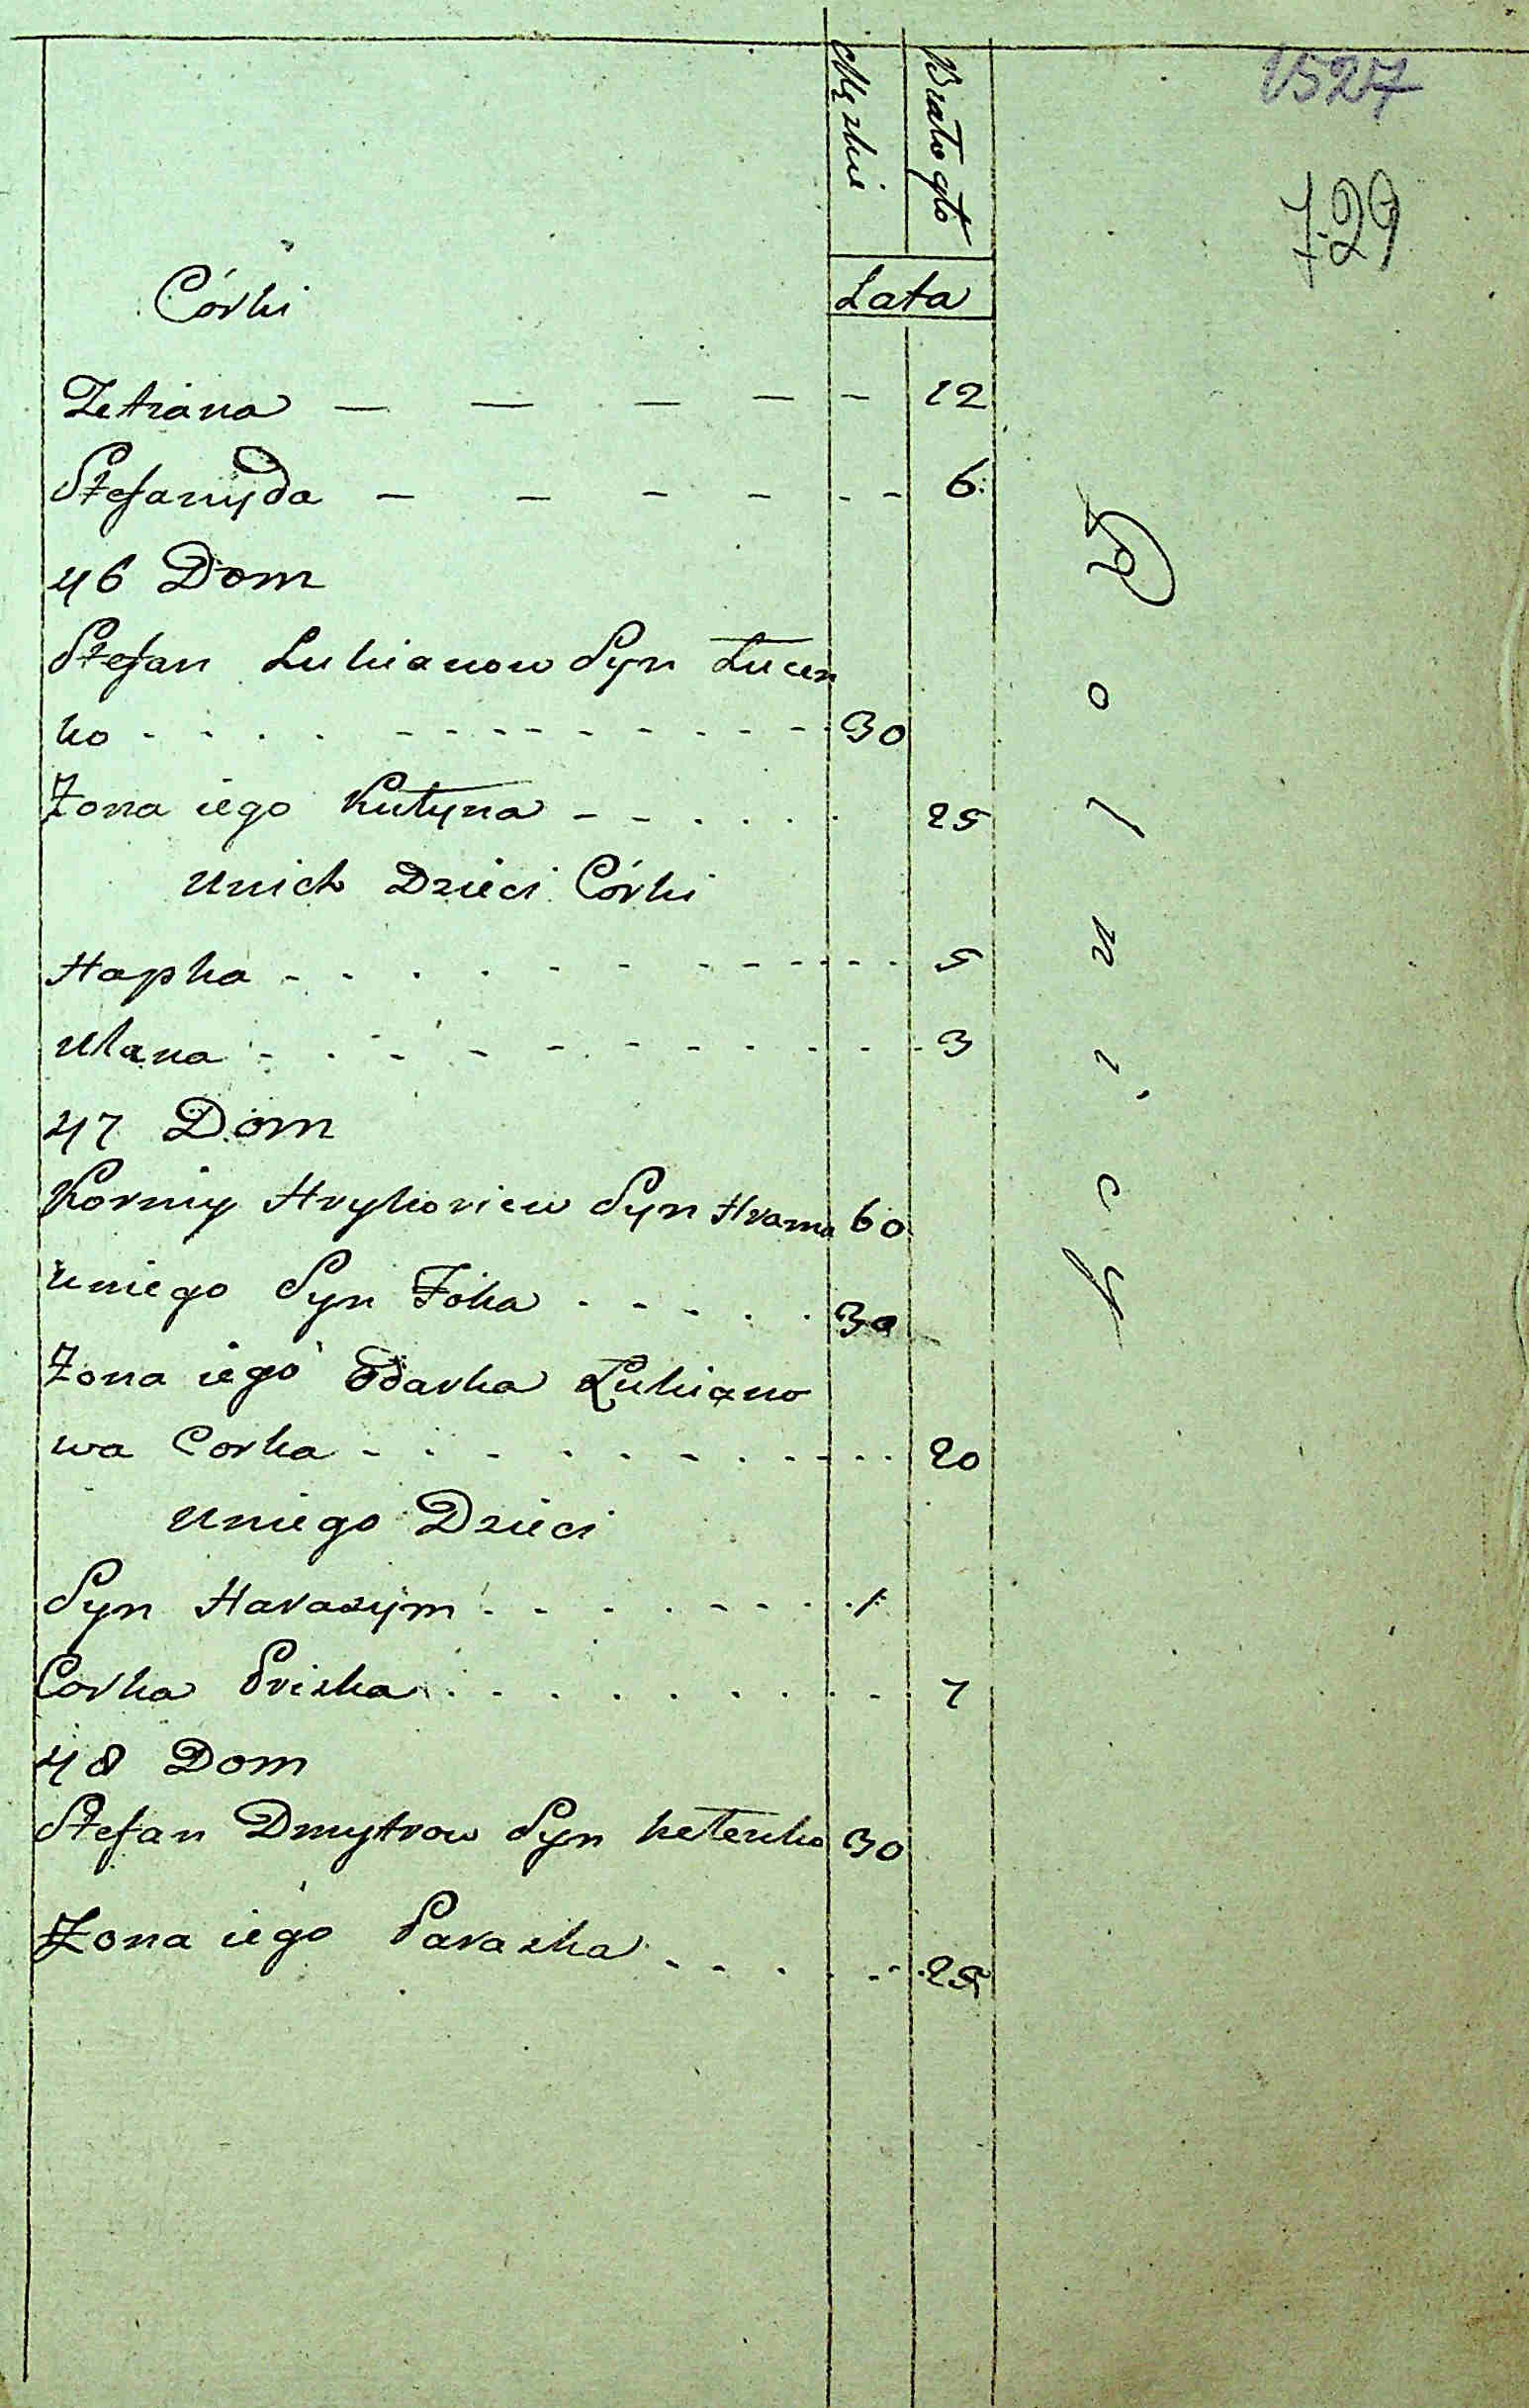 Męzkie
Białogło
1527
729
Córki
Lata
Tetiana — — — — — 12
Stefanyda — — — — - - 6
46 Dom
Stefan Lukianow Syn Łucen
ko - - - - - - - - - - - 30
Żona iego Kutyna - - . . . . 25
unich Dzieci Córki
Hapka - - - - - - - - - - 5
Ulana - - - - - - - - - - 3
47 Dom
Korniy Hryhoriew Syn Hrama 60
uniego Syn Foka - - - - - 30
Żona iego Odarka Lukiano
wa Corka - - - - - - - - 20
uniego Dzieci
Syn Harasym - - - - - - 1
Corka Priska . . . . . . . . 7
48 Dom
Stefan Dmytrow Syn ketenko 30
Żona iego Paraska - - - - - 25